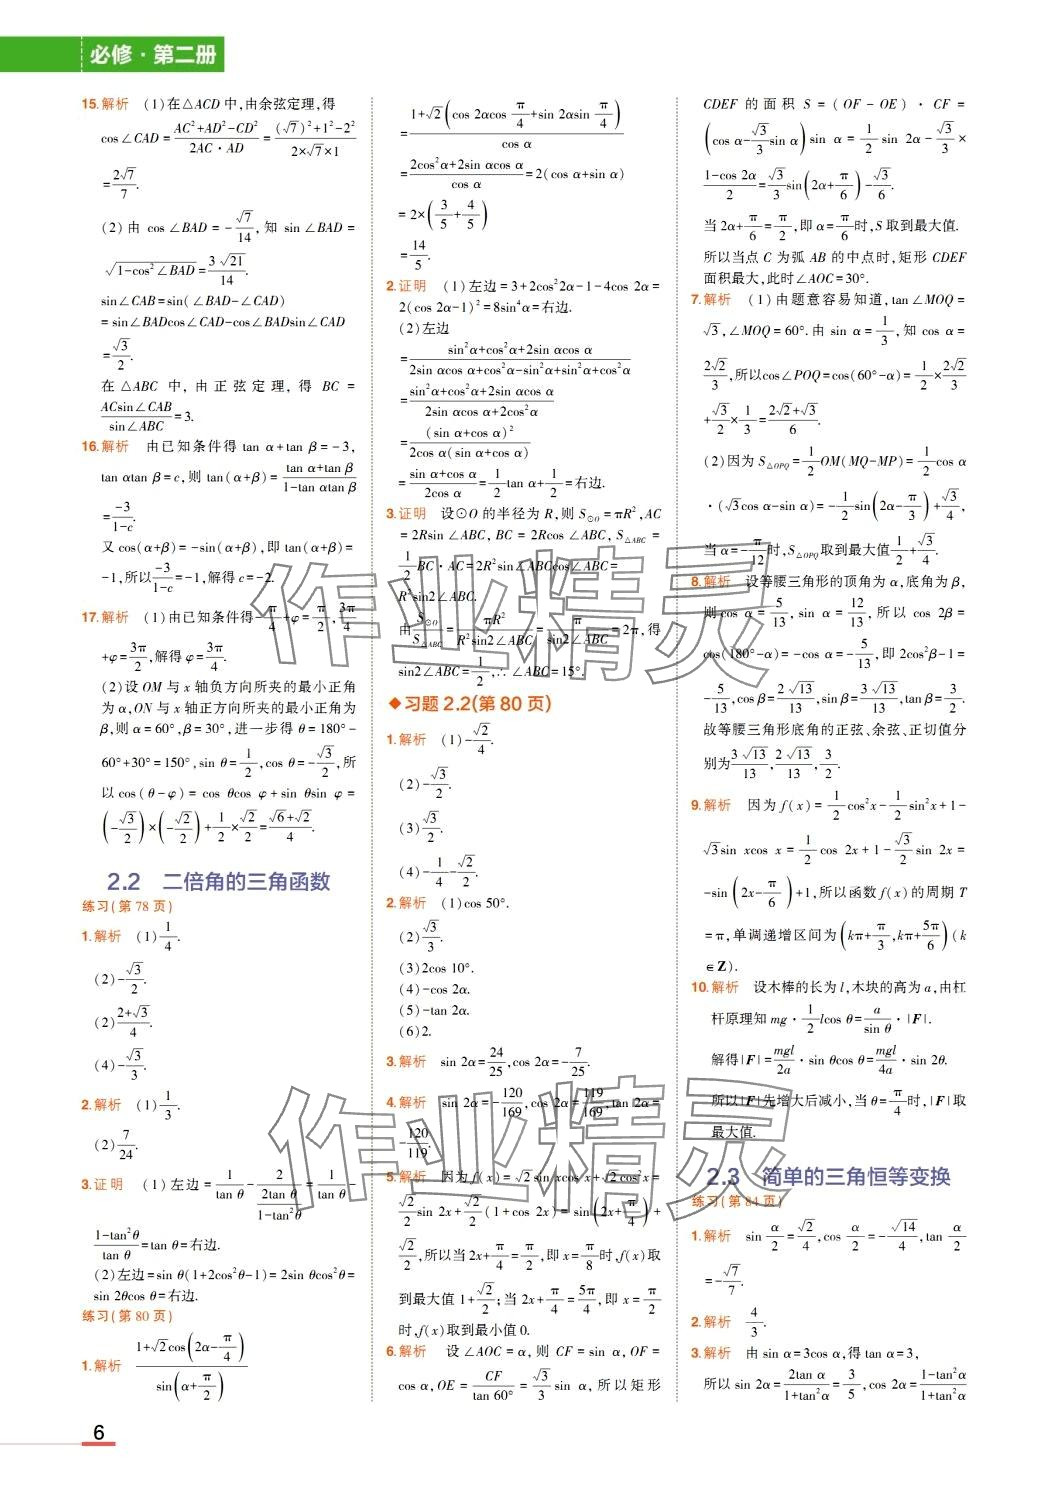 必修·第二册
15.解析 (1)在△ACD中,由余弦定理,得
cos∠CAD=(AC²+AD²-CD²)/(2AC·AD)=((√7)²+1²-2²)/(2×√7×1)
=2√7/7.
(2)由 cos∠BAD=-√7/14,知 sin∠BAD=
√(1-cos²∠BAD)=3√21/14.
sin∠CAB=sin(∠BAD-∠CAD)
=sin∠BADcos∠CAD-cos∠BADsin∠CAD
=√3/2.
在△ABC中,由正弦定理,得 BC=
ACsin∠CAB/sin∠ABC=3.
16.解析 由已知条件得 tan α+tan β=-3,
tan αtan β=c,则 tan(α+β)=(tan α+tan β)/(1-tan αtan β)
=-3/(1-c).
又 cos(α+β)=-sin(α+β),即 tan(α+β)=
-1,所以-3/(1-c)=-1,解得 c=-2.
17.解析 (1)由已知条件得-π/4+φ=π/2,3π/4
+φ=3π/2,解得 φ=3π/4.
(2)设 OM 与 x 轴负方向所夹的最小正角
为 α,ON 与 x 轴正方向所夹的最小正角为
β,则 α=60°,β=30°,进一步得 θ=180°-
60°+30°=150°,sin θ=1/2,cos θ=-√3/2,所
以 cos(θ-φ)=cos θcos φ+sin θsin φ=
(-√3/2)×(-√2/2)+1/2×√2/2=(√6+√2)/4.
2.2 二倍角的三角函数
练习(第78页)
1.解析 (1)1/4.
(2)-√3/2.
(2)(2+√3)/4.
(4)-√3/3.
2.解析 (1)1/3.
(2)7/24.
3.证明 (1)左边=1/tan θ-2/(2tan θ/(1-tan²θ))=1/tan θ-
(1-tan²θ)/tan θ=tan θ=右边.
(2)左边=sin θ(1+2cos²θ-1)=2sin θcos²θ=
sin 2θcos θ=右边.
练习(第80页)
1.解析 (1+√2cos(2α-π/4))/sin(α+π/2)
=(1+√2(cos 2αcos π/4+sin 2αsin π/4))/cos α
=(2cos²α+2sin αcos α)/cos α=2(cos α+sin α)
=2×(3/5+4/5)
=14/5.
2.证明 (1)左边=3+2cos²2α-1-4cos 2α=
2(cos 2α-1)²=8sin⁴α=右边.
(2)左边
=(sin²α+cos²α+2sin αcos α)/(2sin αcos α+cos²α-sin²α+sin²α+cos²α)
=(sin²α+cos²α+2sin αcos α)/(2sin αcos α+2cos²α)
=(sin α+cos α)²/(2cos α(sin α+cos α))
=(sin α+cos α)/(2cos α)=1/2tan α+1/2=右边.
3.证明 设⊙O的半径为R,则 S⊙O=πR²,AC
=2Rsin∠ABC,BC=2Rcos∠ABC,S△ABC=
1/2BC·AC=2R²sin∠ABCcos∠ABC=
R²sin2∠ABC.
由S⊙O/S△ABC=πR²/(R²sin2∠ABC)=π/(sin2∠ABC)=2π,得
sin2∠ABC=1/2,∴∠ABC=15°.
◆习题2.2(第80页)
1.解析 (1)-√2/4.
(2)-√3/2.
(3)√3/2.
(4)-1/4-√2/2.
2.解析 (1)cos 50°.
(2)√3/3.
(3)2cos 10°.
(4)-cos 2α.
(5)-tan 2α.
(6)2.
3.解析 sin 2α=24/25,cos 2α=-7/25.
4.解析 sin 2α=-120/169,cos 2α=119/169,tan 2α=
-120/119.
5.解析 因为 f(x)=√2sin xcos x+√2cos²x=
√2/2sin 2x+√2/2(1+cos 2x)=sin(2x+π/4)+
√2/2,所以当2x+π/4=π/2,即x=π/8时,f(x)取
到最大值1+√2/2;当2x+π/4=5π/4,即x=π/2
时,f(x)取到最小值0.
6.解析 设∠AOC=α,则 CF=sin α,OF=
cos α,OE=CF/tan 60°=√3/3 sin α,所以矩形
CDEF的面积 S=(OF-OE)·CF=
(cos α-√3/3sin α)sin α=1/2sin 2α-√3/3×
(1-cos 2α)/2=√3/3sin(2α+π/6)-√3/6.
当2α+π/6=π/2,即α=π/6时,S取到最大值.
所以当点C为弧AB的中点时,矩形CDEF
面积最大,此时∠AOC=30°.
7.解析 (1)由题意容易知道,tan∠MOQ=
√3,∠MOQ=60°.由 sin α=1/3,知 cos α=
2√2/3,所以cos∠POQ=cos(60°-α)=1/2×2√2/3
+√3/2×1/3=(2√2+√3)/6.
(2)因为S△OPQ=1/2OM(MQ-MP)=1/2cos α
·(√3cos α-sin α)=-1/2sin(2α-π/3)+√3/4,
当α=-π/12时,S△OPQ取到最大值1/2+√3/4.
8.解析 设等腰三角形的顶角为α,底角为β,
则 cos α=5/13,sin α=12/13,所以 cos 2β=
cos(180°-α)=-cos α=-5/13,即2cos²β-1=
-5/13,cos β=2√13/13,sin β=3√13/13,tan β=3/2.
故等腰三角形底角的正弦、余弦、正切值分
别为3√13/13,2√13/13,3/2.
9.解析 因为 f(x)=1/2cos²x-1/2sin²x+1-
√3sin xcos x=1/2cos 2x+1-√3/2sin 2x=
-sin(2x-π/6)+1,所以函数f(x)的周期T
=π,单调递增区间为(kπ+π/3,kπ+5π/6)(k
∈Z).
10.解析 设木棒的长为l,木块的高为a,由杠
杆原理知 mg·1/2lcos θ=a/sin θ·|F|.
解得|F|=mgl/2a·sin θcos θ=mgl/4a·sin 2θ.
所以|F|先增大后减小,当θ=π/4时,|F|取
最大值.
2.3 简单的三角恒等变换
练习(第84页)
1.解析 sin α/2=√2/4,cos α/2=-√14/4,tan α/2
=-√7/7.
2.解析 4/3.
3.解析 由 sin α=3cos α,得 tan α=3,
所以 sin 2α=2tan α/(1+tan²α)=3/5,cos 2α=(1-tan²α)/(1+tan²α)
6
作业精灵
作业精灵